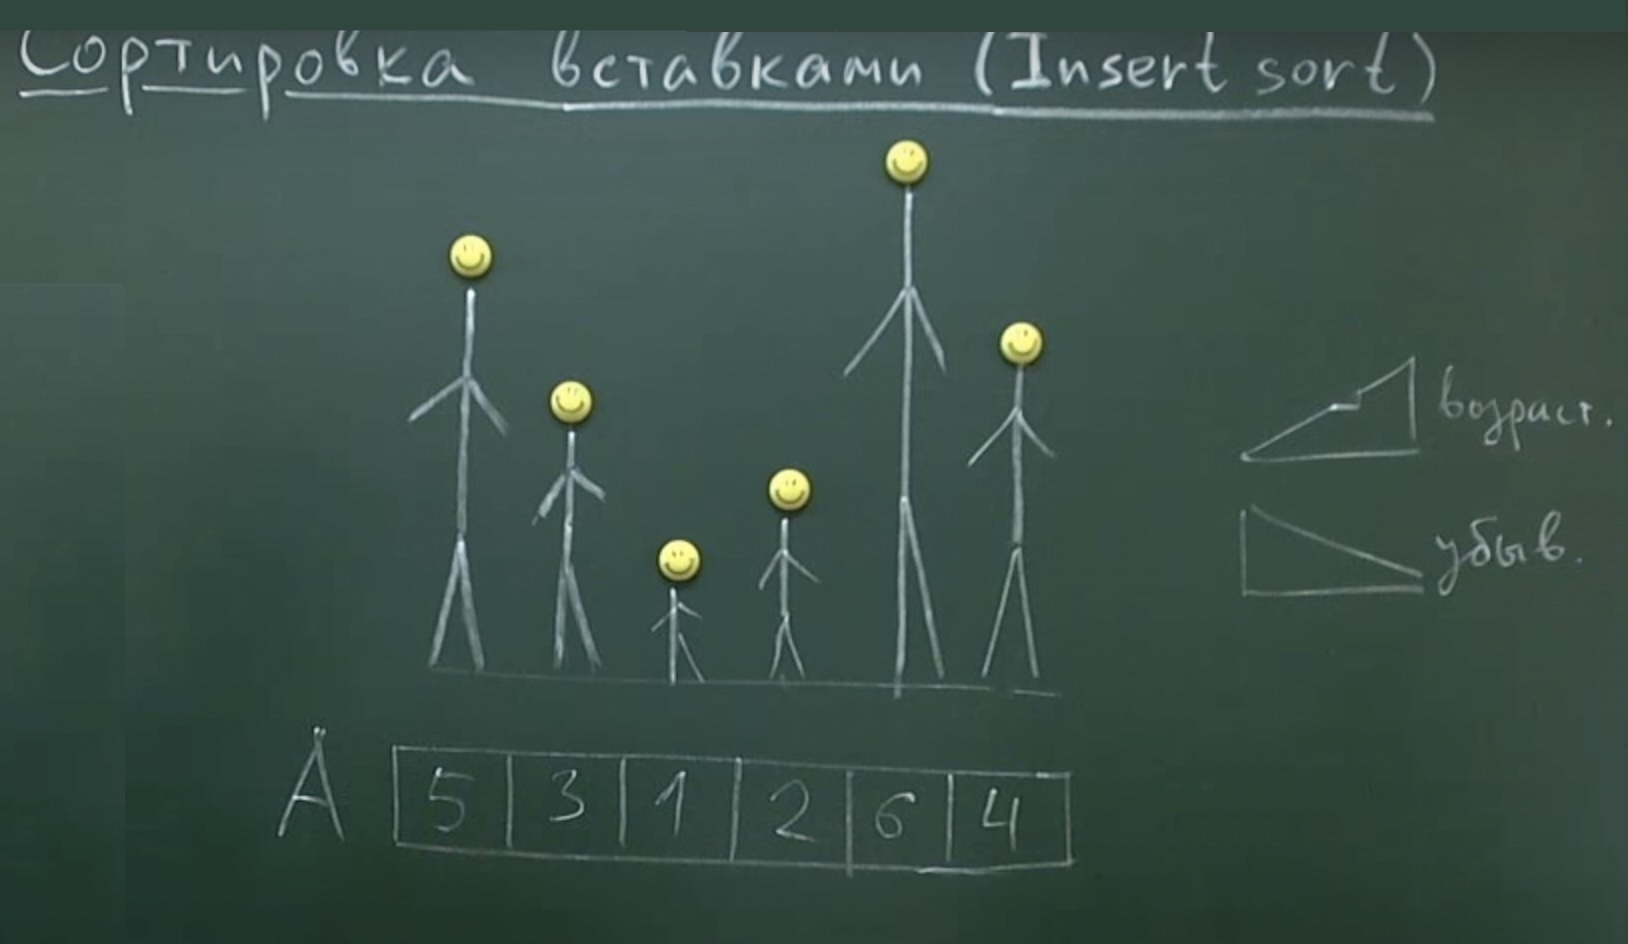 Сортировка вставками (Insert sort)
возраст.
убыв.
A 5 3 1 2 6 4